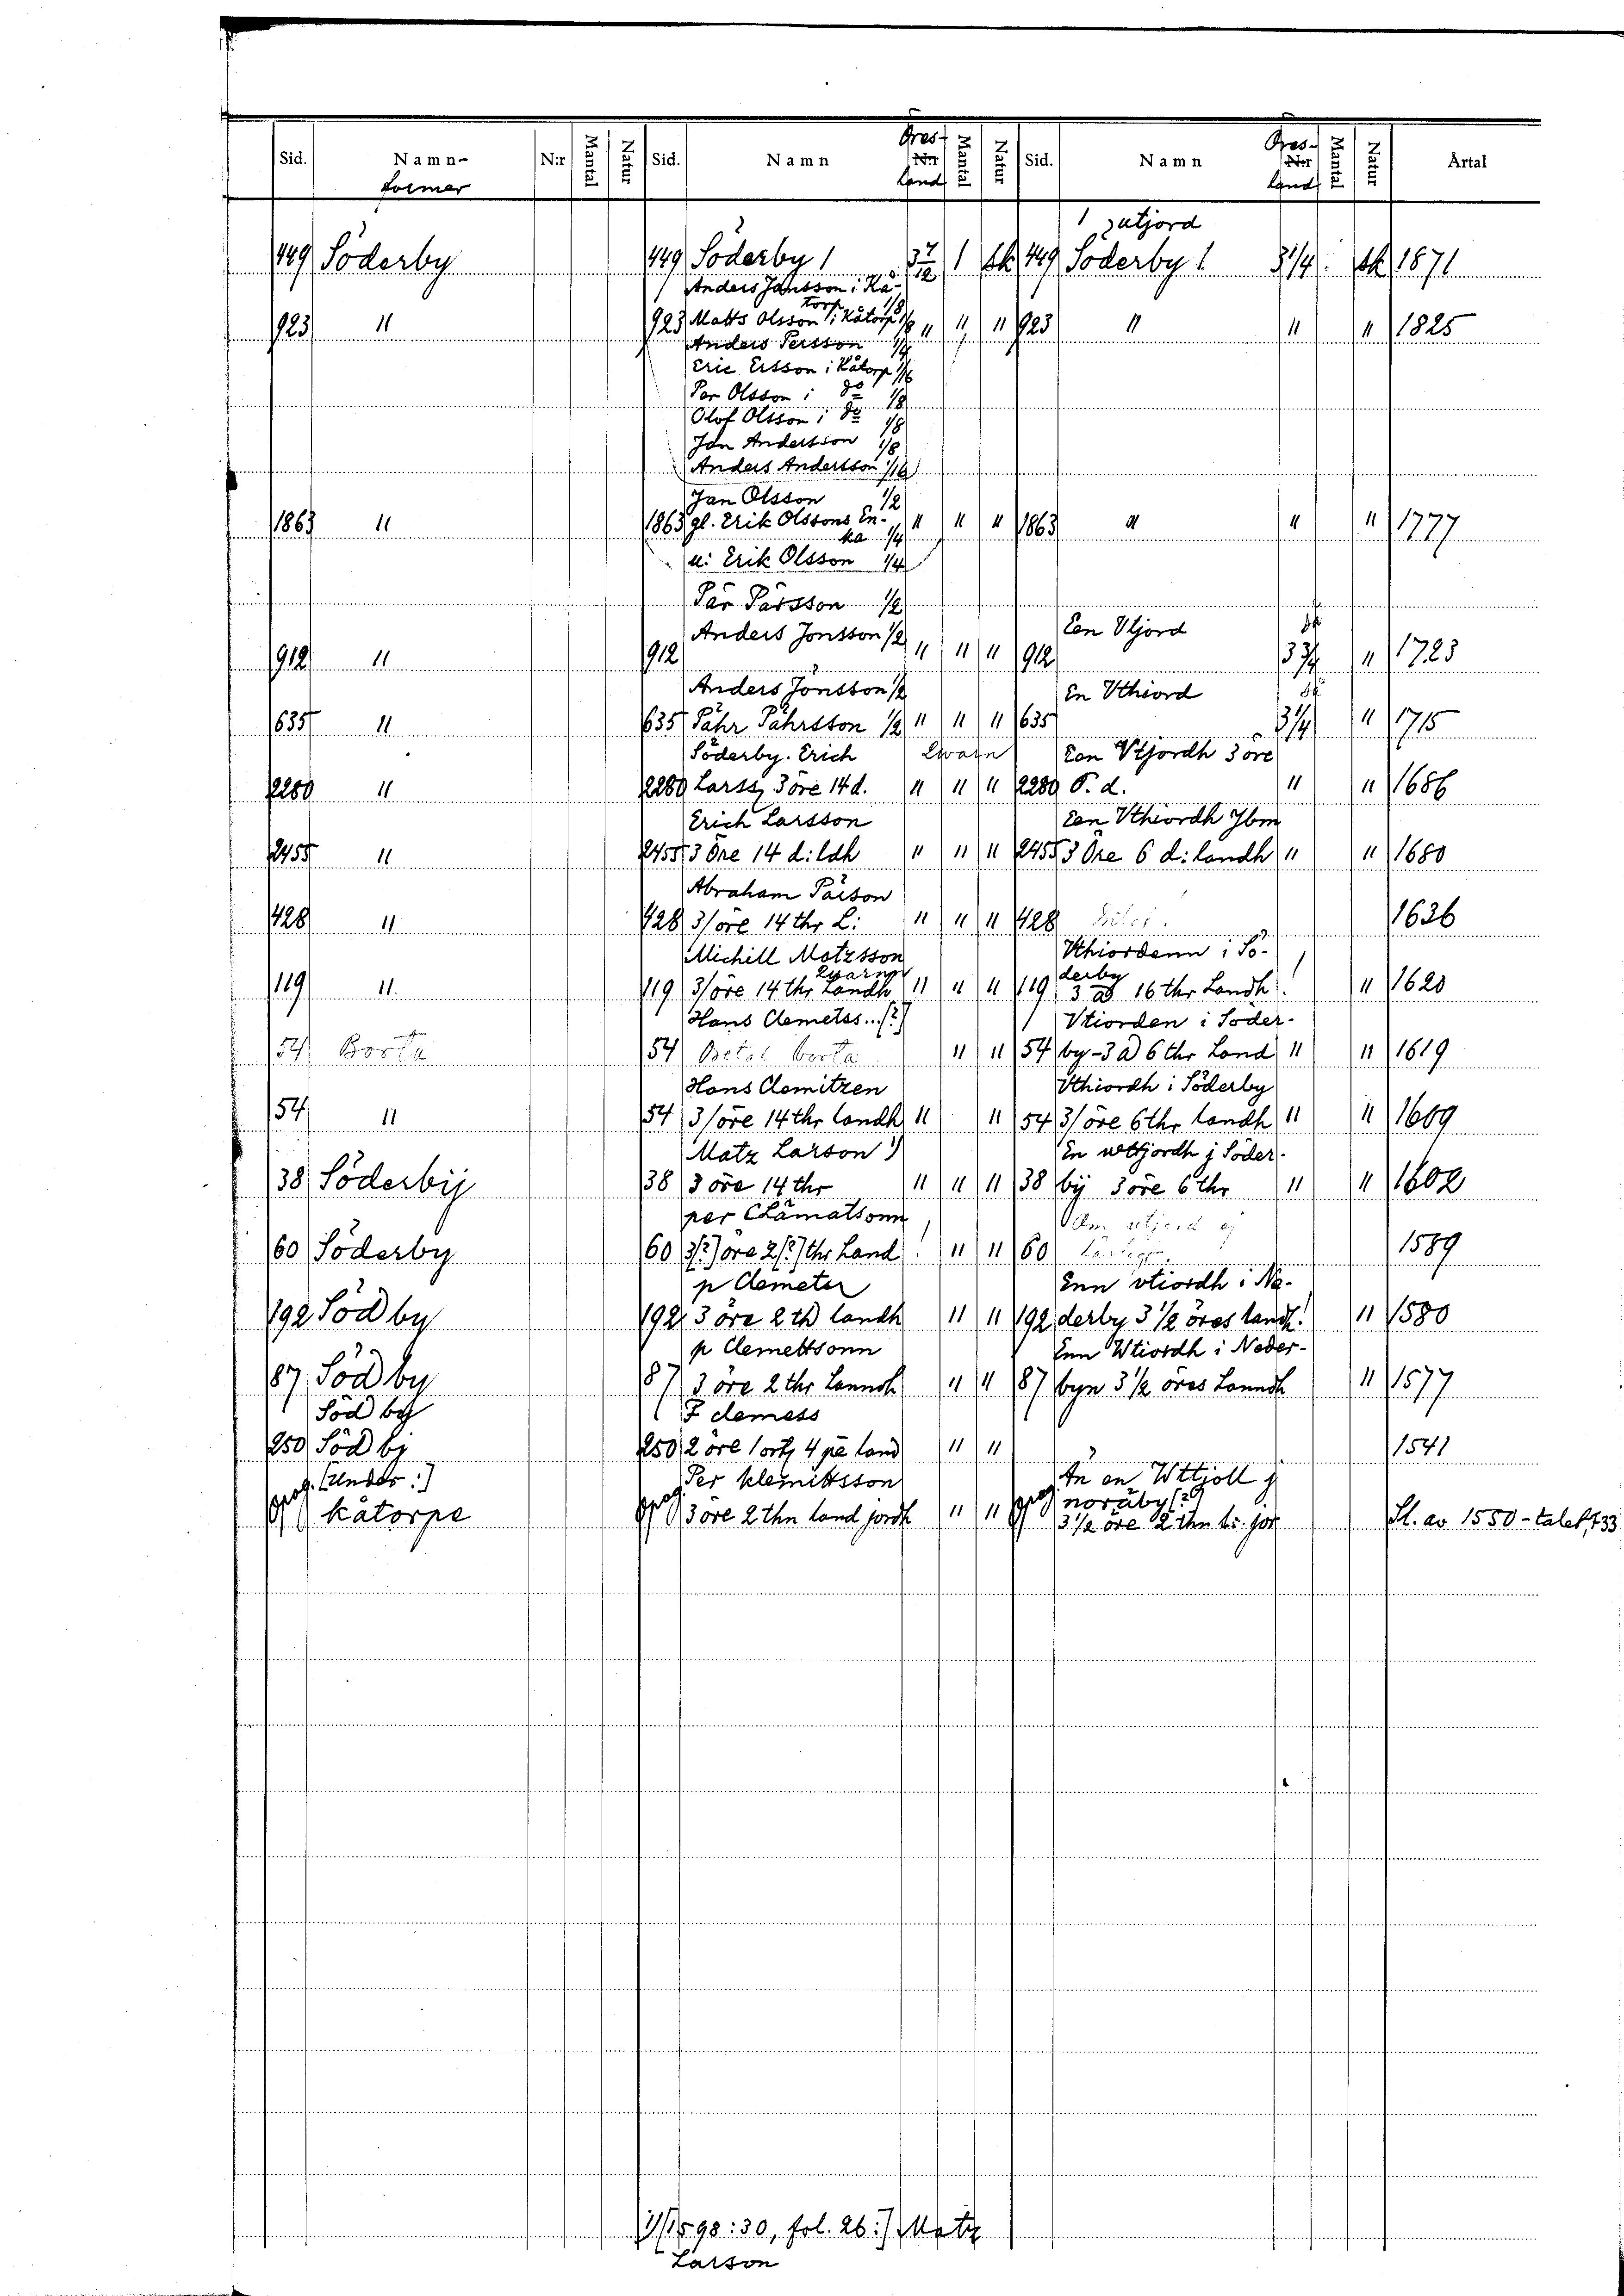 Sid. Namn- former N:r Mantal Natur Sid. Namn Öres- land Mantal Natur Sid. Namn Öres- land Mantal Natur Årtal
1 utjord
449 Söderby 449 Söderby 1 1 sk 449 Söderby 1 3 1/4 sk 1871
Anders Jansson i Kå-
torp 1/8
923 " 923 Matts Olsson i Kåtorp 1/8 " " " 923 " " " 1825
Anders Persson 1/4
Eric Ersson i Kåtorp 1/16
Per Olsson i do 1/8
Olof Olsson i do 1/8
Jan Andersson 1/8
Anders Andersson 1/16
Jan Olsson 1/2
1863 " 1863 gl. Erik Olssons En- " " " 1863 " " " 1777
ka 1/4
u: Erik Olsson 1/4
Pär Pärsson 1/2
Anders Jonsson 1/2 Een Utjord
912 " 912 " " " 912 3 3/4 " 1723
Anders Jönsson 1/2 En Uthiord
635 " 635 Pähr Pährsson 1/2 " " " 635 3 1/4 " 1715
Söderby. Erich Qwarn Een Vtjordh 3 öre
2280 " 2280 Larss, 3 öre 14 d. " " " 2280 6. d. " " 1686
Erich Larsson Een Vthiordh Ibm
2455 " 2455 3 Öre 14 d: ldh " " " 2455 3 Öre 6 d: landh " " 1680
Abraham Pärson
428 " 428 3/öre 14 thr L: " " " 428 1636
Michill Matzsson Vthiordenn i Sö-
Quarnn derby
119 " 119 3/öre 14 thr Landh " " " 119 3 16 thr Landh ! " 1620
Hans Clemetss...(?) Vtiorden i Söder-
54 Borta 54 Betal borta " " 54 by-3 a 6 thr Land " " 1619
Hans Clemitzen Vthiordh i Söderby
54 " 54 3/öre 14 thr landh " " 54 3/öre 6 thr landh " " 1609
Matz Larson 1) En wttjordh j Söder-
38 Söderbij 38 3 öre 14 thr " " " 38 bij 3 öre 6 thr " " 1602
per Clämatsonn Om utjord ej
60 Söderby 60 3(?) öre 2(?) thr Land ! " " 60 1589
p Clemeter Enn vtiordh i Ne-
192 Söd by 192 3 öre 2 th landh " " 192 derby 3 1/2 öres landh! " 1580
p Clemettsonn Enn Wtiordh i Neder-
87 Söd by 87 3 öre 2 thr Lanndh " " 87 byn 3 1/2 öres Lanndh " 1577
Söd by clemess
250 Söd bj 250 2 öre 1 ort, 4 land " " 1541
(Under:) Per klemittsson Än en Wttjoll j
opag. kåtorpe opag. 3 öre 2 thn land jordh " " opag. noräby (?)
3 1/2 öre 2 thn Sl. av 1550-talet, 133
1)/1598:30, fol. 26:/ Matz
Larson